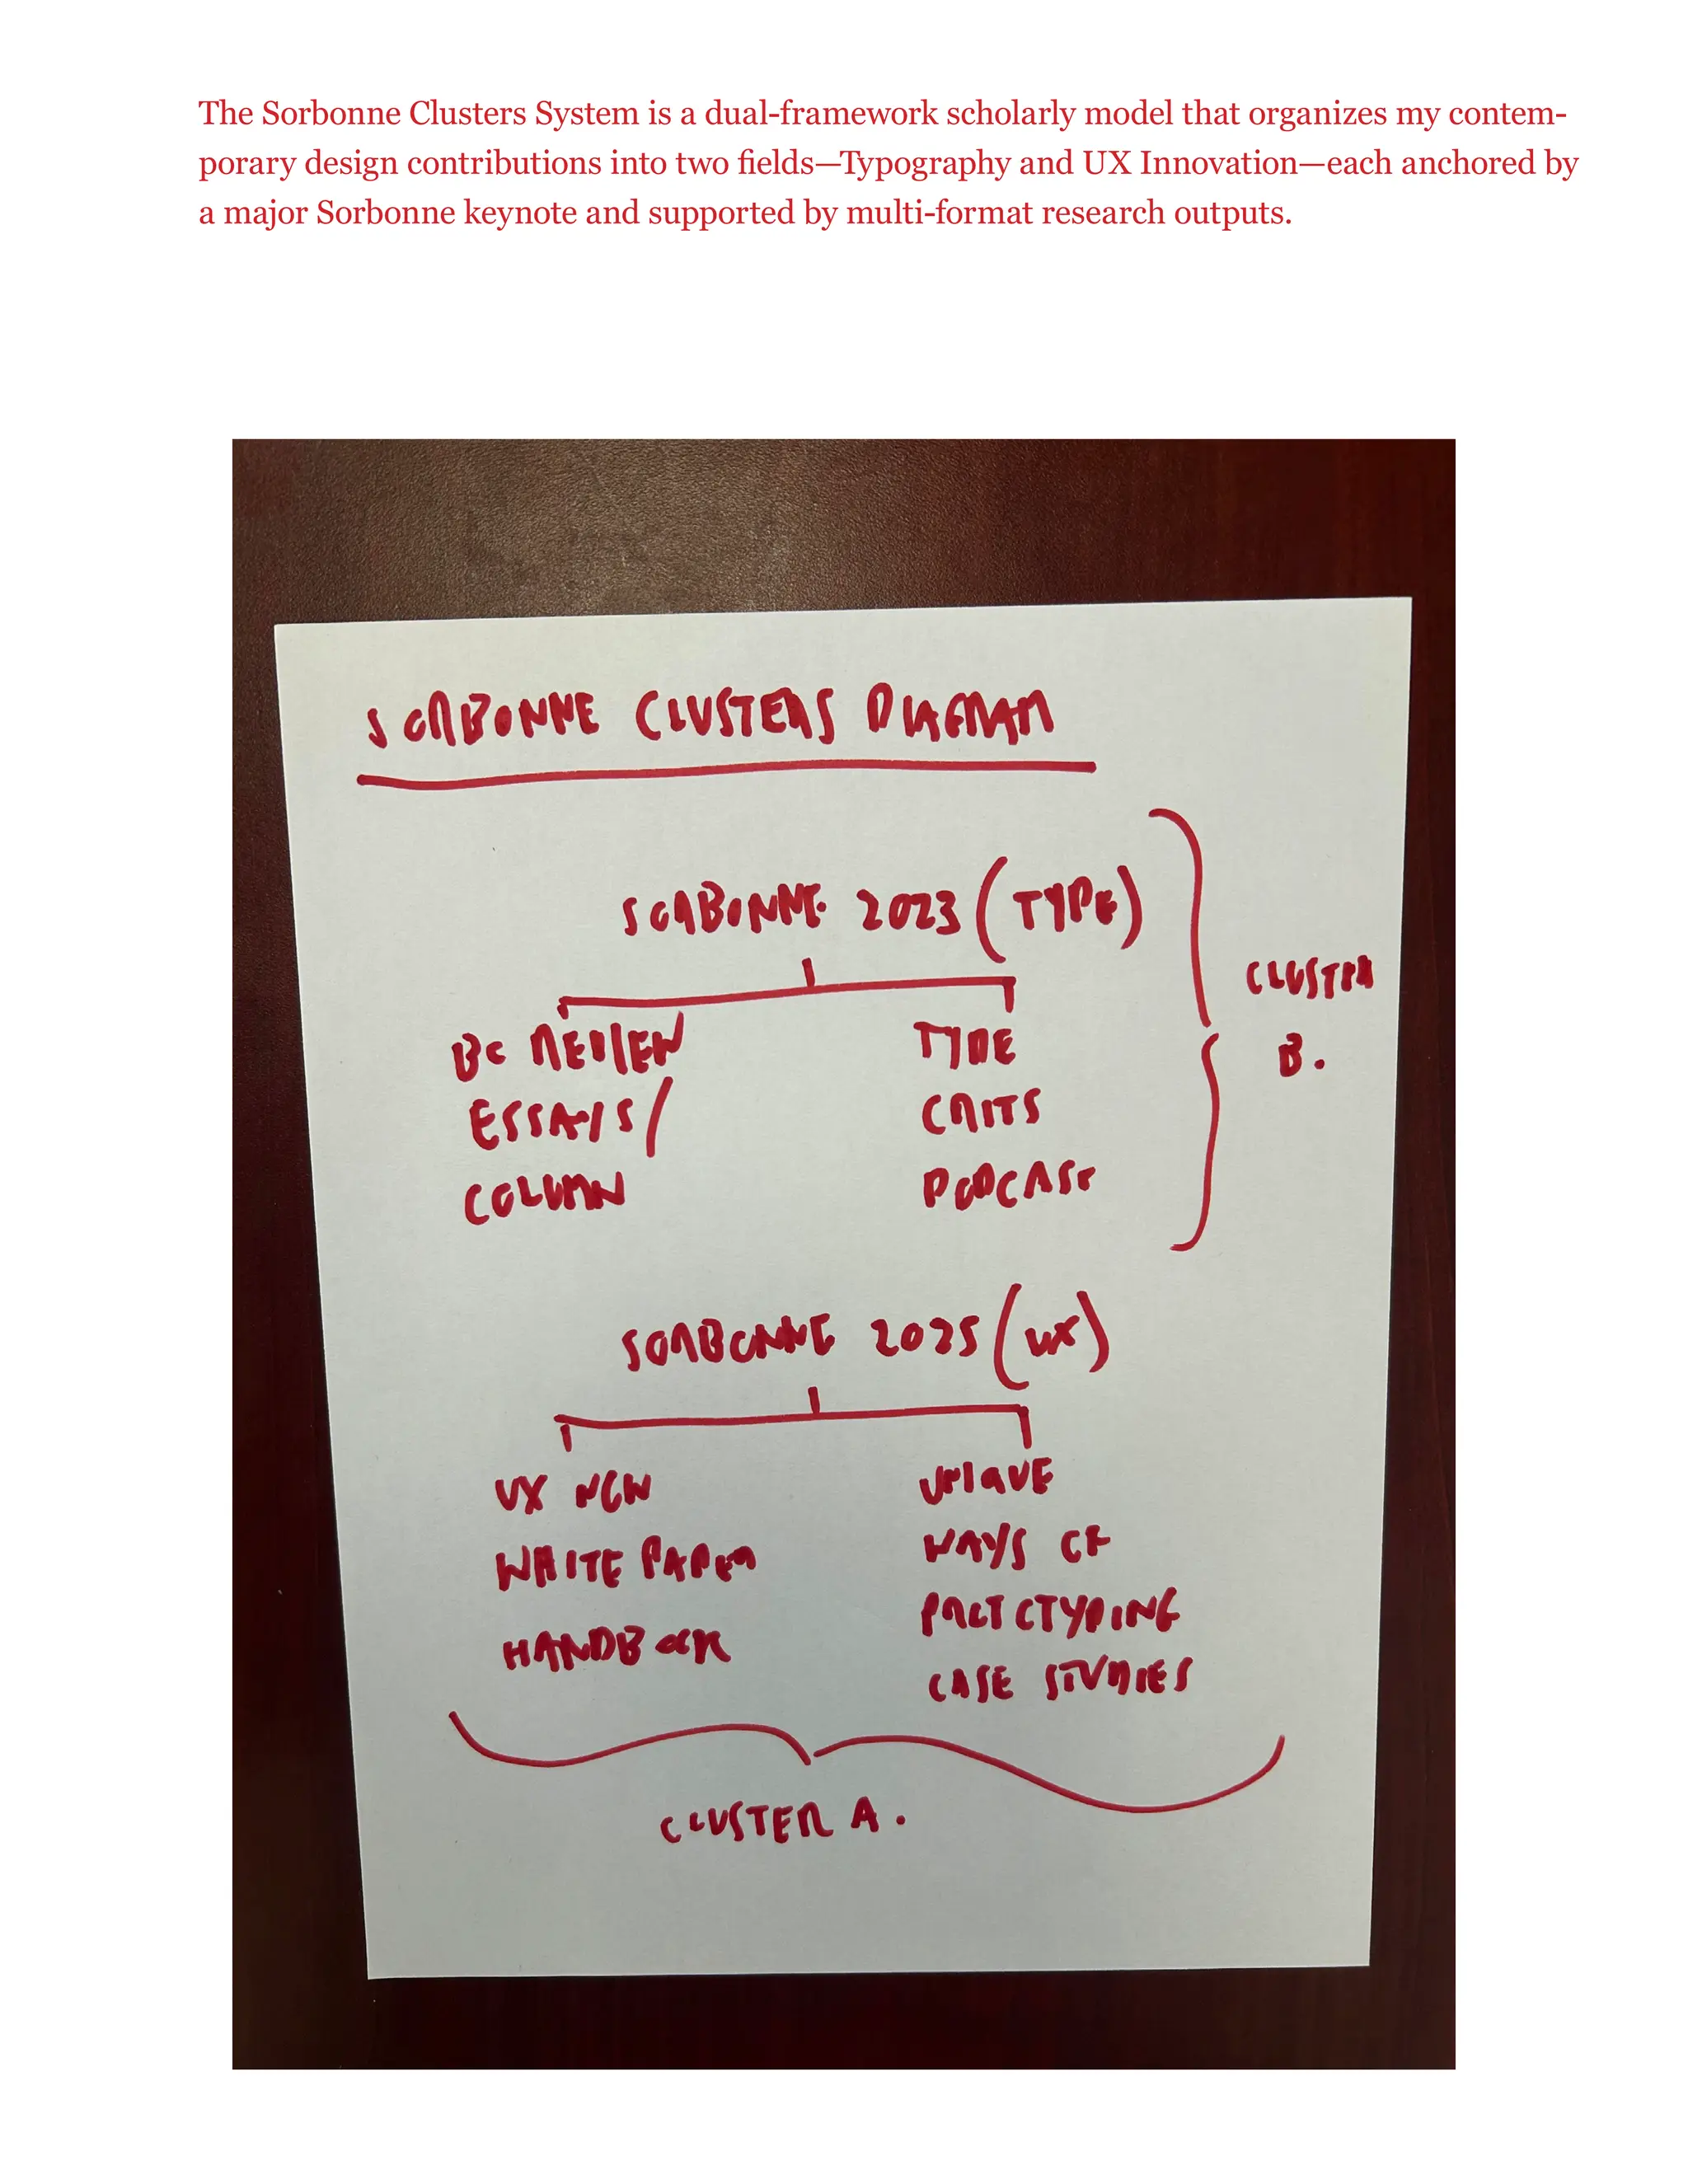 The Sorbonne Clusters System is a dual-framework scholarly model that organizes my contem-
porary design contributions into two fields—Typography and UX Innovation—each anchored by
a major Sorbonne keynote and supported by multi-format research outputs.
SORBONNE CLUSTERS DIAGRAM
SORBONNE 2023 (TYPE)
CLUSTER
B.
BC REVIEW
ESSAYS/
COLUMN
TYPE
CRITS
PODCAST
SORBONNE 2025 (UX)
UX NOW
WHITE PAPER
HANDBOOK
UNIQUE
WAYS OF
PROTOTYPING
CASE STUDIES
CLUSTER A.